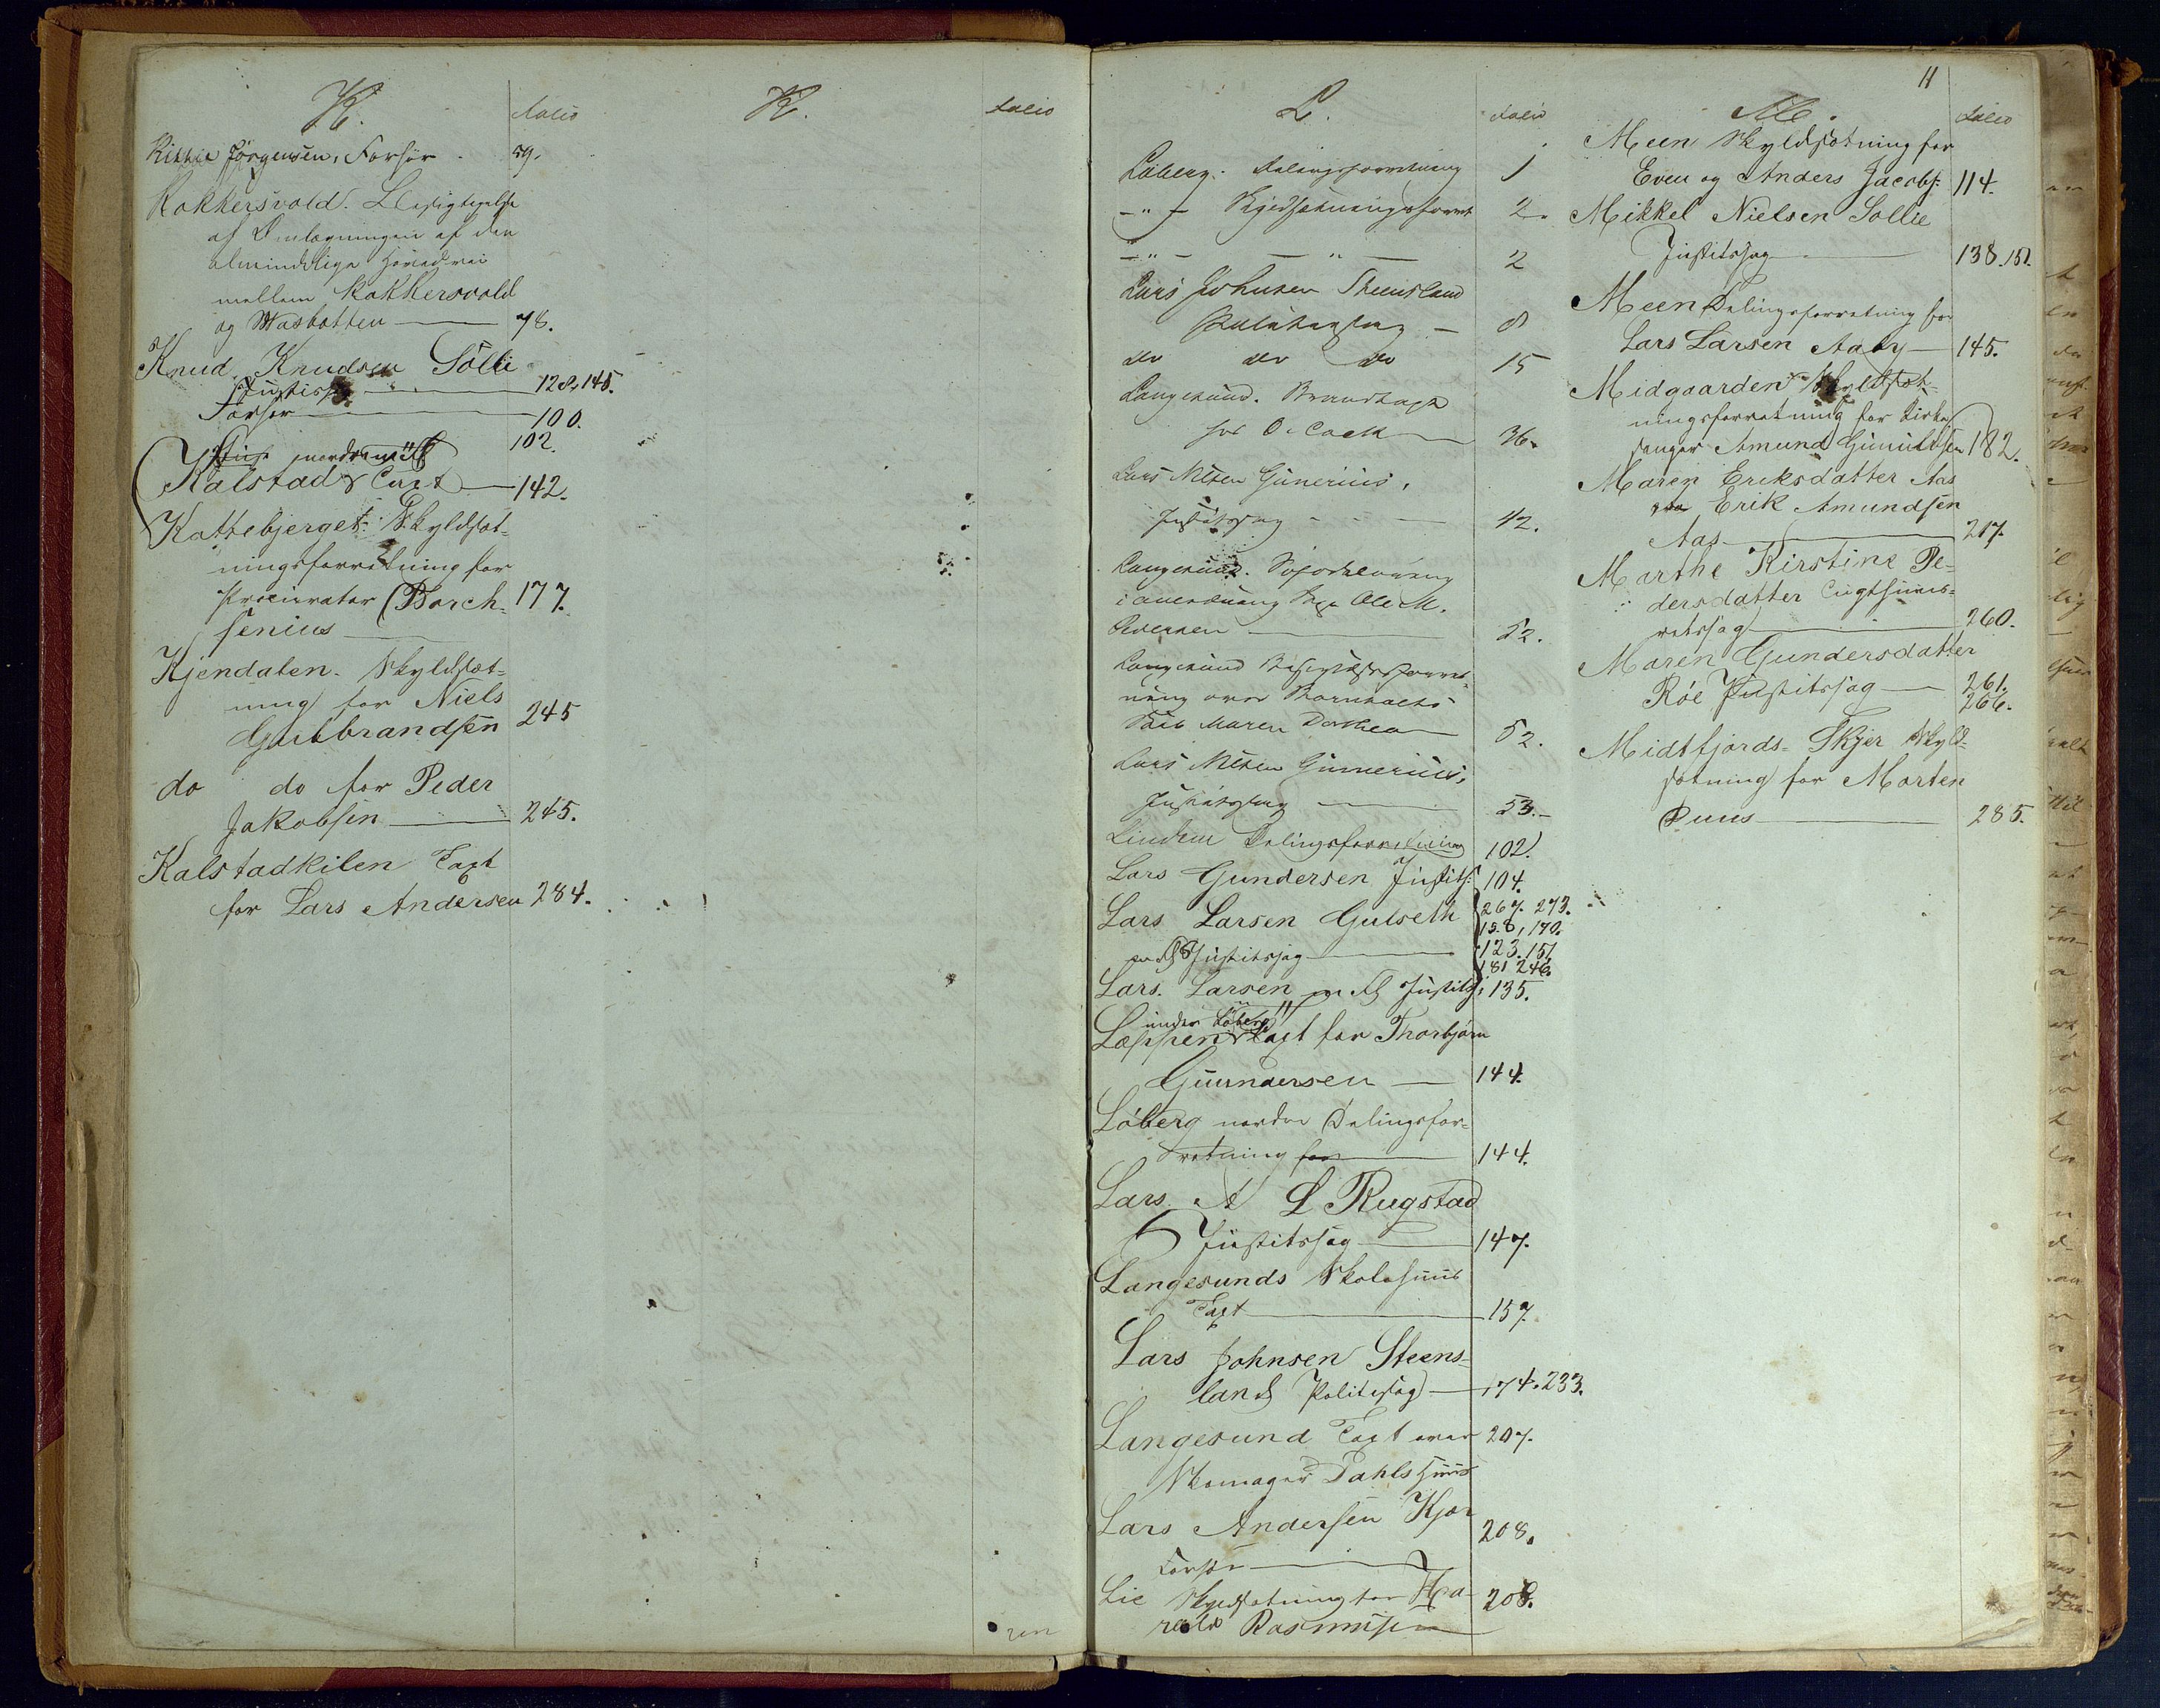 K.
Folio
Kittil Jörgensen, Forhör. 59.
Kokkersvold. Besigtigelse
af Omlægningen af den
almindelige Hovedvei
mellem Kokkersvold
og Vasbotten — 78.
Knud Knudsen Sölli
Justitssag — 128, 145.
Forhör — 100.
102.
Kalstad Taxt — 142.
Kattebjerget. Skyldsæt-
ningsforretning for
Procurator Borch- 177.
senius —
Kjendalen. Skyldsæt-
ning for Niels
Gulbrandsen 245
do do for Peder
Jakobsen — 245.
Kalstadkilen Taxt
for Lars Andersen 284.
K.
Folio
L.
Folio
Löberg. Delingsforretning 1
-"- Skyldsætningsforret 2.
-"- — " — 2
Lars Johnsen Steensland
Politisag — 8
do do do 15
Langesund. Brandtaxt
for O. Cock — 36.
Lars Nilsen Gunerius,
Justitssag — 42.
Langesund. Söforklaring
i anledning Ole M.
Pedersen — 52.
Langesund Besigtelsesforret-
ning over
Maren Dorthea — 52.
Lars Nilsen Gunnerius,
Justitssag — 53.
Lindem Delingsforretning 102.
Lars Gundersen Justits: 104.
Lars Larsen Gulseth 267. 273.
158, 170.
m fl Justitssag — 123. 151.
181 246.
Lars Larsen m fl Justits: 135.
under Löberg
Løppen Taxt for Thorbjörn
Gunndersen — 144.
Löberg nordre Delingsfor-
retning for — 144.
Lars A L Rugstad
Justitssag — 147.
Langesunds Skolehuus
Taxt — 157.
Lars Johnsen Steens-
land Politisag — 174. 233.
Langesund Taxt over 207.
Skomager Dahls Huus
Lars Andersen Kjær
208.
Forhör —
Lie Skyldsætning for Ha- 208.
rald Rasmusen —
11
M.
Folio
Meen Skyldsætning for
Even og Anders Jacobs: 114.
Mikkel Nielsen Sollie
Justitssag — 138. 151.
Meen Delingsforretning for
Lars Larsen Aaby — 145.
Midgaarden Skyldsæt-
ningsforretning for Kirke-
sanger Amund Gunuldsen 182.
Maren Eriksdatter Aas
Erik Amundsen
Aas — 217.
Marthe Kirstine Pe-
dersdatter Tugthuus-
retssag — 260.
Maren Gundersdatter
Röe Justitssag — 261.
266.
Midtfjords-Skjer Skyld-
sætning for Morten
Duus — 285.